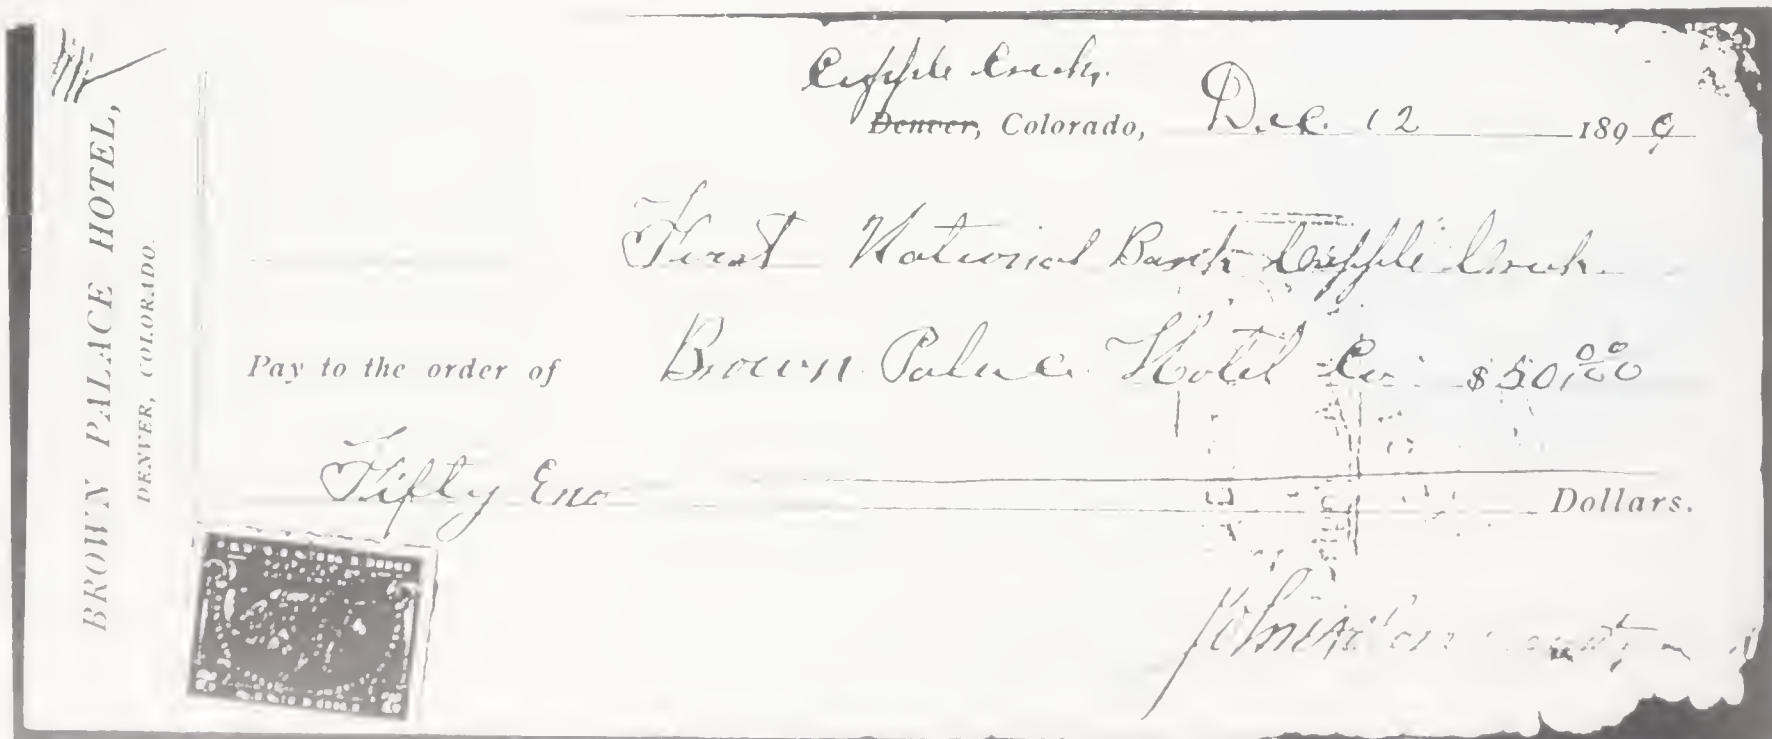 BROWN PALACE HOTEL,
DENVER, COLORADO.
Cripple Creek,
Denver, Colorado, Dec. 12 1899
First National Bank Cripple Creek
Pay to the order of Brown Palace Hotel Co. $50.00
Fifty
Dollars.